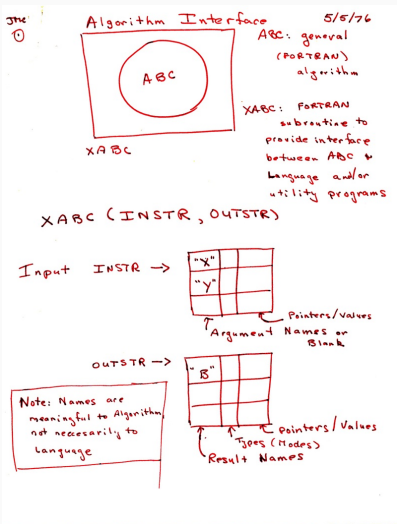 JMC Algorithm Interface 5/5/76
ABC: general
(FORTRAN)
algorithm
ABC
XABC: FORTRAN
subroutine to
provide interface
between ABC &
Language and/or
utility programs
XABC
XABC (INSTR, OUTSTR)
Input INSTR →
"X"
"Y"
Pointers/Values
Argument Names or
Blank
OUTSTR →
"B"
Note: Names are
meaningful to Algorithm,
not necesarily to
Language
Pointers/Values
Types (Modes)
Result Names